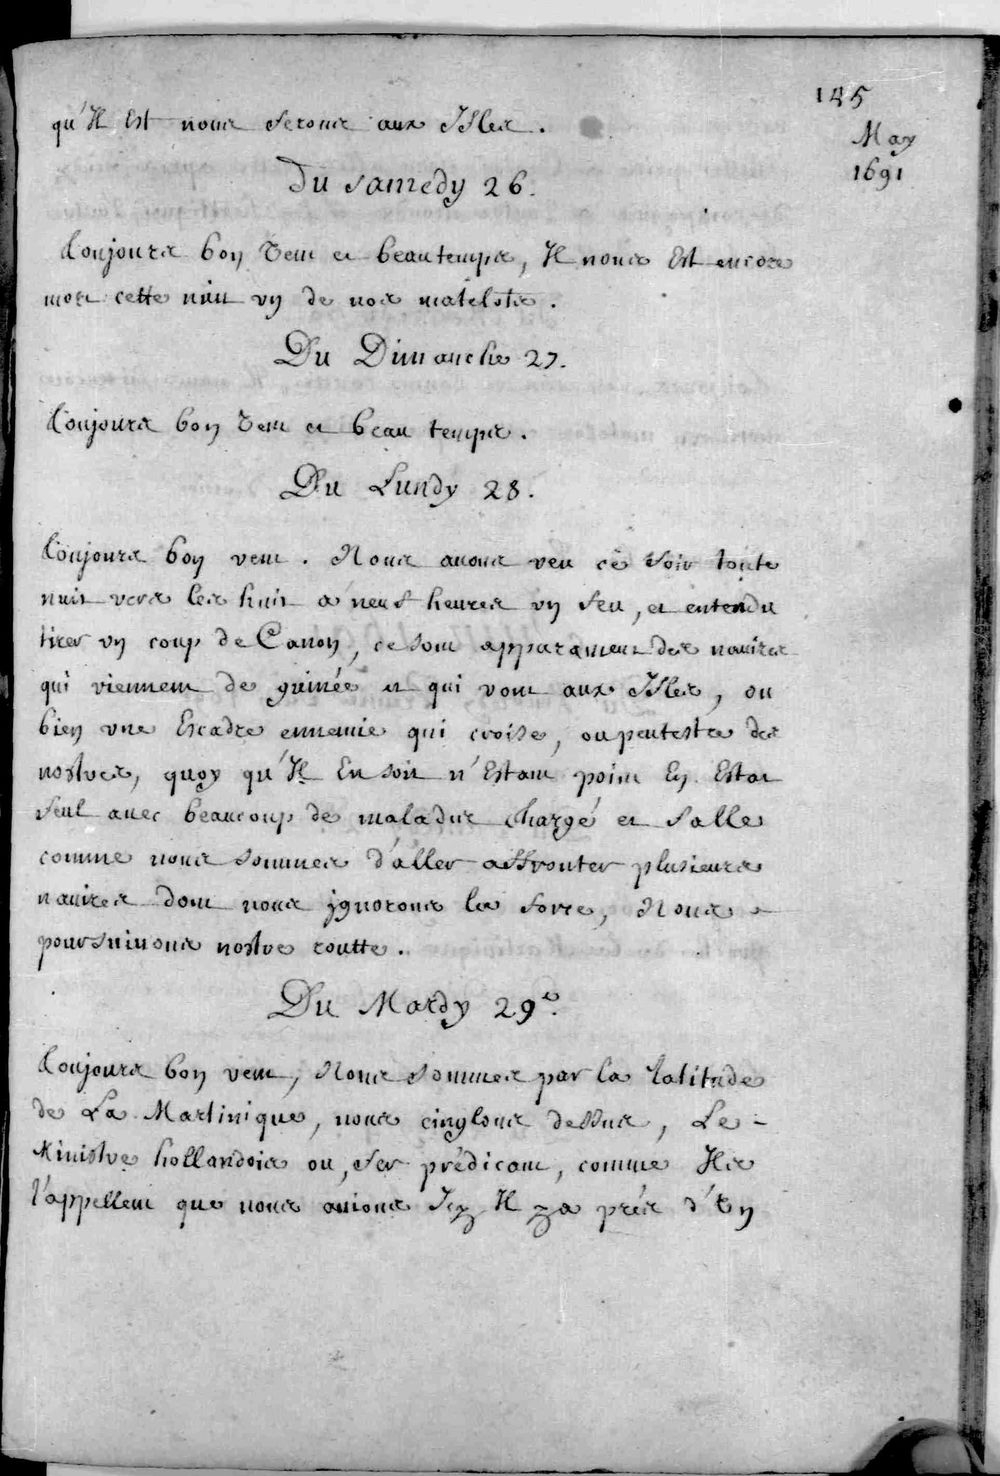 145
May
1691
qu'Il Est nous serons aux Isles.
Du samedy 26.
Toujours bon vent et beau temps, Il nous Est encore
mort cette nuit vn de nos matelots.
Du Dimanche 27.
Toujours bon vent et beau temps.
Du Lundy 28.
Toujours bon vent. Nous auons veu ce soir toute
nuit vers les huit a neuf heures vn feu, et entendu
tirer vn coup de Canon, ce sont apparament des nauires
qui viennent de guinée et qui vont aux Isles, ou
bien vne Escadre ennemie qui croise, ou peutestre des
nostres, quoy qu'Il En soit n'Estant point En Estat
seul auec beaucoup de malades chargé et salle
comme nous sommes d'aller affronter plusieurs
nauires dont nous jgnorons les force, Nous
poursuiuons nostre routte.
Du Mardy 29e.
Toujours bon vent, Nous sommes par la latitude
de La Martinique, nous cinglons dessus, Le -
Ministre hollandois ou, prédicant, comme Ils
l'appellent que nous auions Icy Il y a prés d'Vn